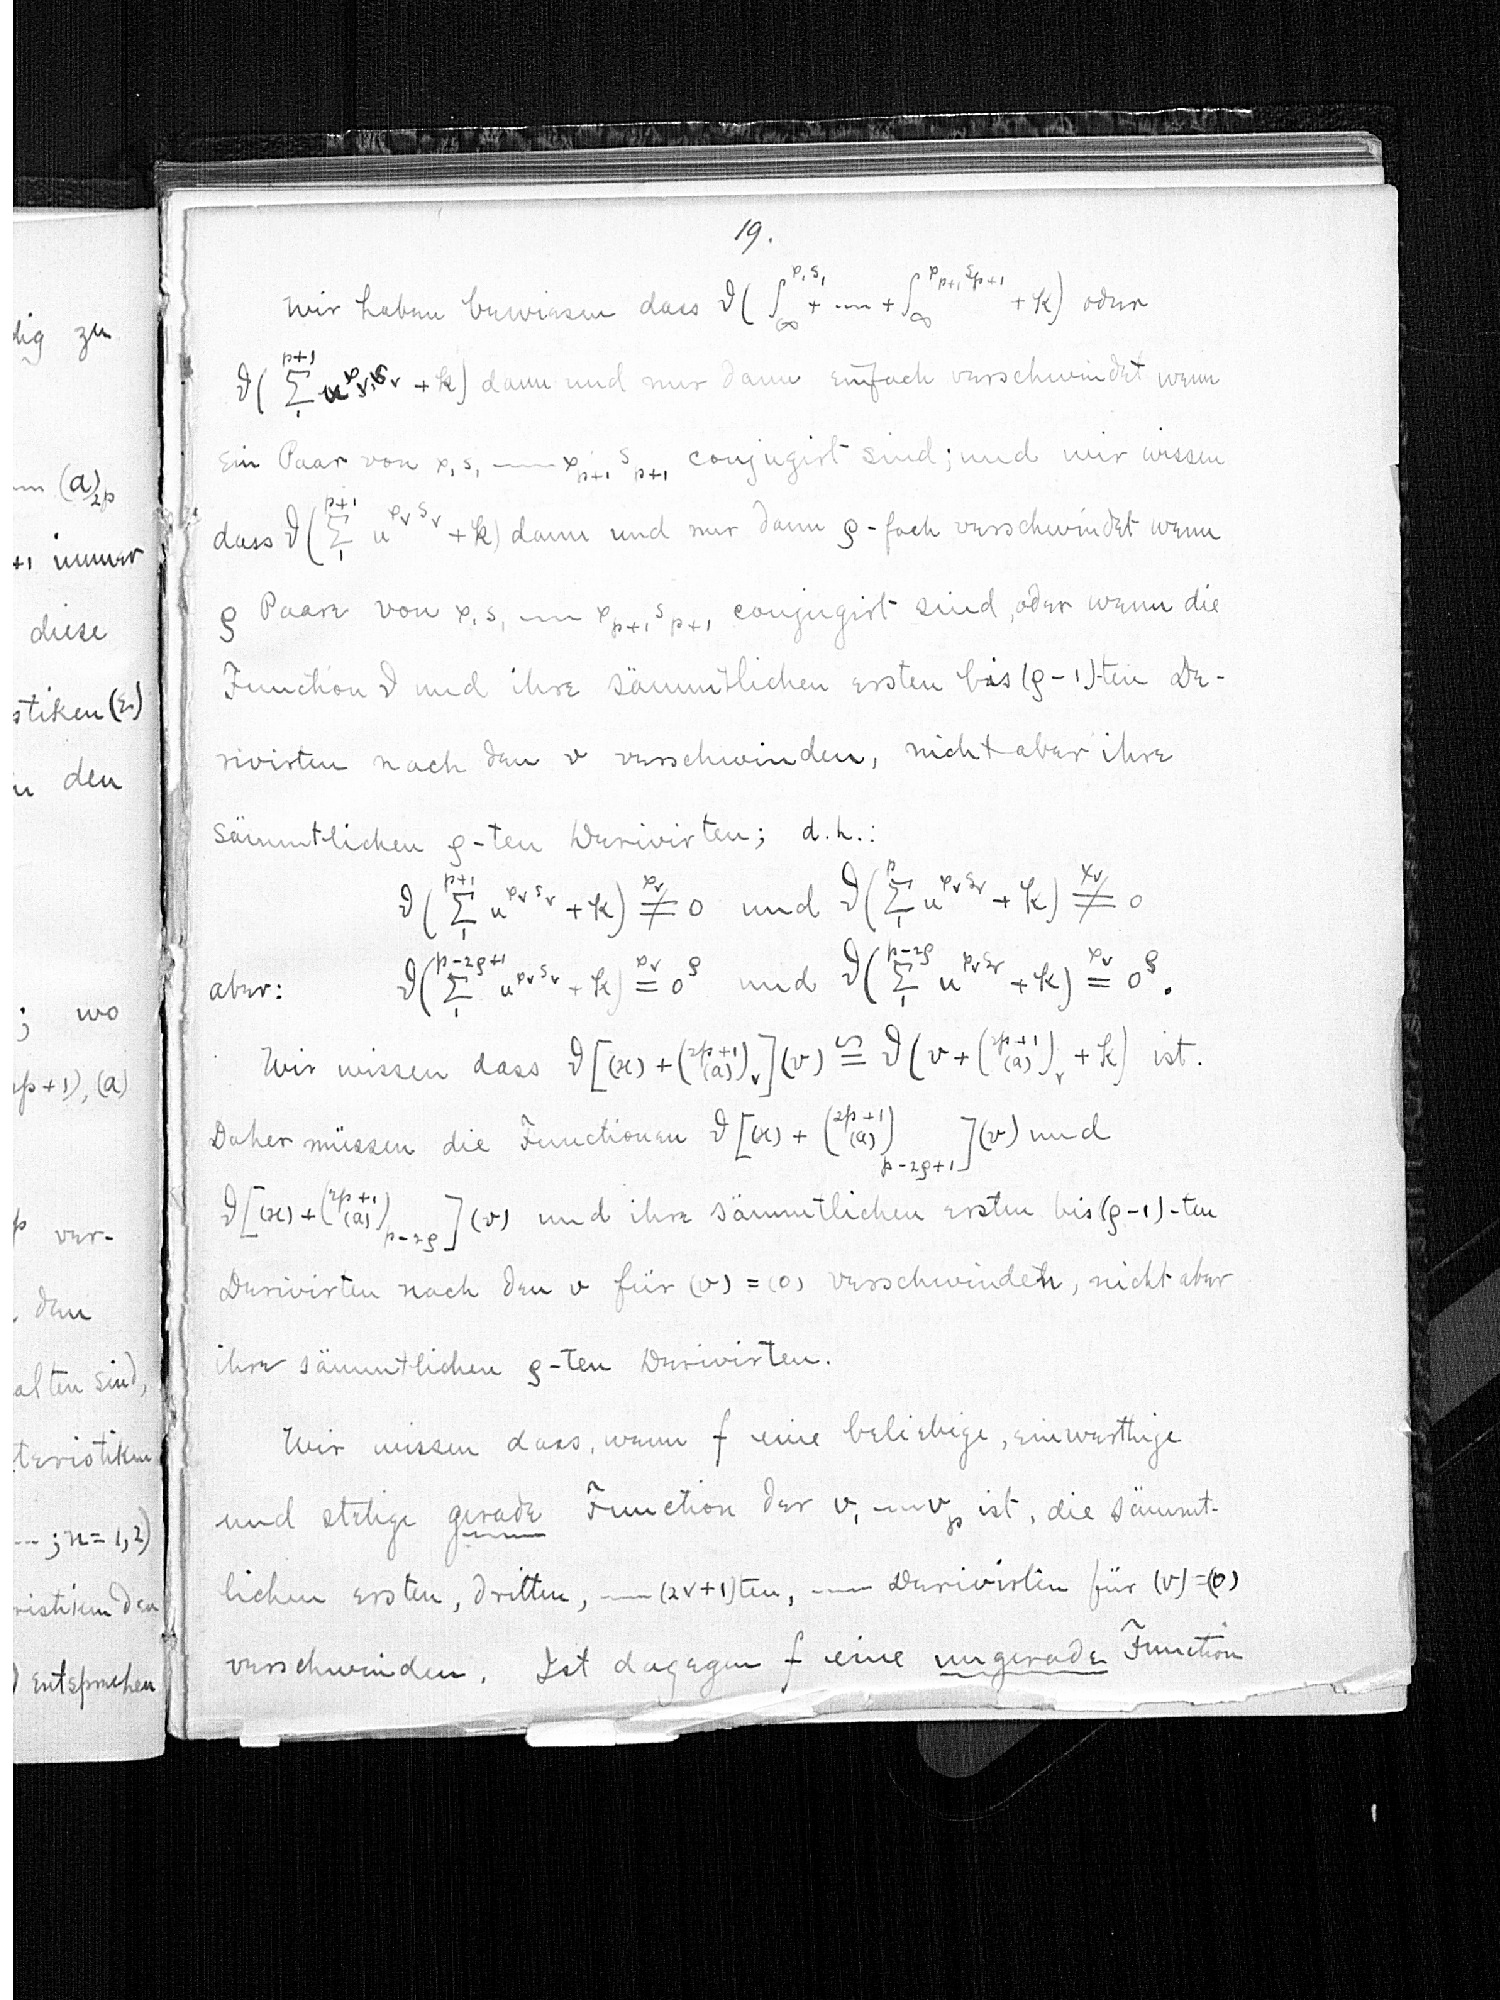 dig zu
(a)₂ₚ
+1 immer
diese
stiken (ε)
den
; wo
2p+1), (a)
p ver-
den
alten sind,
teristiken
---; n = 1, 2)
ristiken den
) entsprechen
19.
Wir haben bewiesen dass ϑ(∫_∞^{x₁s₁} + --- + ∫_∞^{x_{p+1}s_{p+1}} + k) oder
ϑ(∑₁^{p+1} u^{x_ν s_ν} + k) dann und nur dann einfach verschwindet wenn
ein Paar von x₁s₁ --- x_{p+1}s_{p+1} conjugirt sind; und wir wissen
dass ϑ(∑₁^{p+1} u^{x_ν s_ν} + k) dann und nur dann ϱ-fach verschwindet wenn
ϱ Paare von x₁s₁ --- x_{p+1}s_{p+1} conjugirt sind, oder wenn die
Function ϑ und ihre sämmtlichen ersten bis (ϱ-1)-ten De-
rivirten nach den v verschwinden, nicht aber ihre
sämmtlichen ϱ-ten Derivirten; d.h.:
ϑ(∑₁^{p+1} u^{x_ν s_ν} + k) ≠^{x_ν} 0 und ϑ(∑₁^{p} u^{x_ν s_ν} + k) ≠^{x_ν} 0
aber: ϑ(∑₁^{p-2ϱ+1} u^{x_ν s_ν} + k) =^{x_ν} 0^ϱ und ϑ(∑₁^{p-2ϱ} u^{x_ν s_ν} + k) =^{x_ν} 0^ϱ.
Wir wissen dass ϑ[(κ) + (^{2p+1}_{(a)})_ν](v) ≌ ϑ(v + (^{2p+1}_{(a)})_ν + k) ist.
Daher müssen die Functionen ϑ[(κ) + (^{2p+1}_{(a)})_{p-2ϱ+1}](v) und
ϑ[(κ) + (^{2p+1}_{(a)})_{p-2ϱ}](v) und ihre sämmtlichen ersten bis (ϱ-1)-ten
Derivirten nach den v für (v) = (0) verschwinden, nicht aber
ihre sämmtlichen ϱ-ten Derivirten.
Wir wissen dass, wenn f eine beliebige, einwerthige
und stetige gerade Function der v₁ --- v_p ist, die sämmt-
lichen ersten, dritten, --- (2ν+1)ten, --- Derivirten für (v) = (0)
verschwinden. Ist dagegen f eine ungerade Function